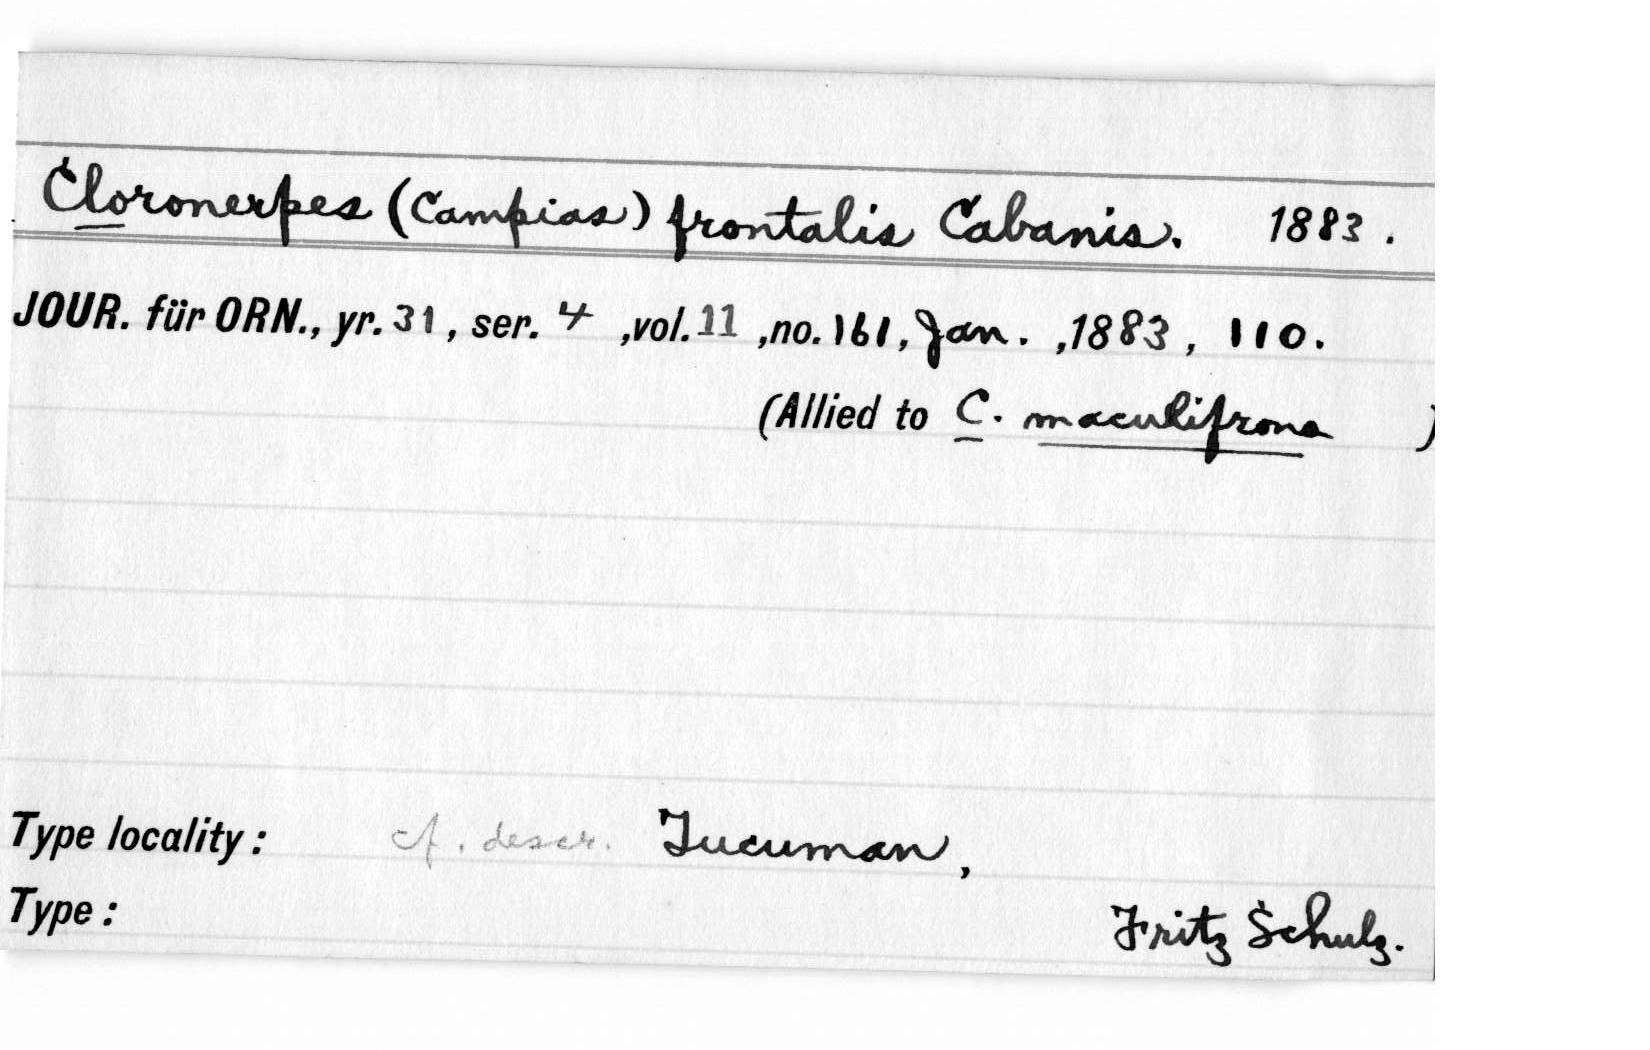 Cloronerpes (Campias) frontalis Cabanis. 1883.
JOUR. für ORN., yr. 31, ser. 4, vol. 11, no. 161, Jan., 1883, 110.
(Allied to C. maculifrons )
Type locality: cf. descr. Tucuman,
Type: Fritz Schulz.